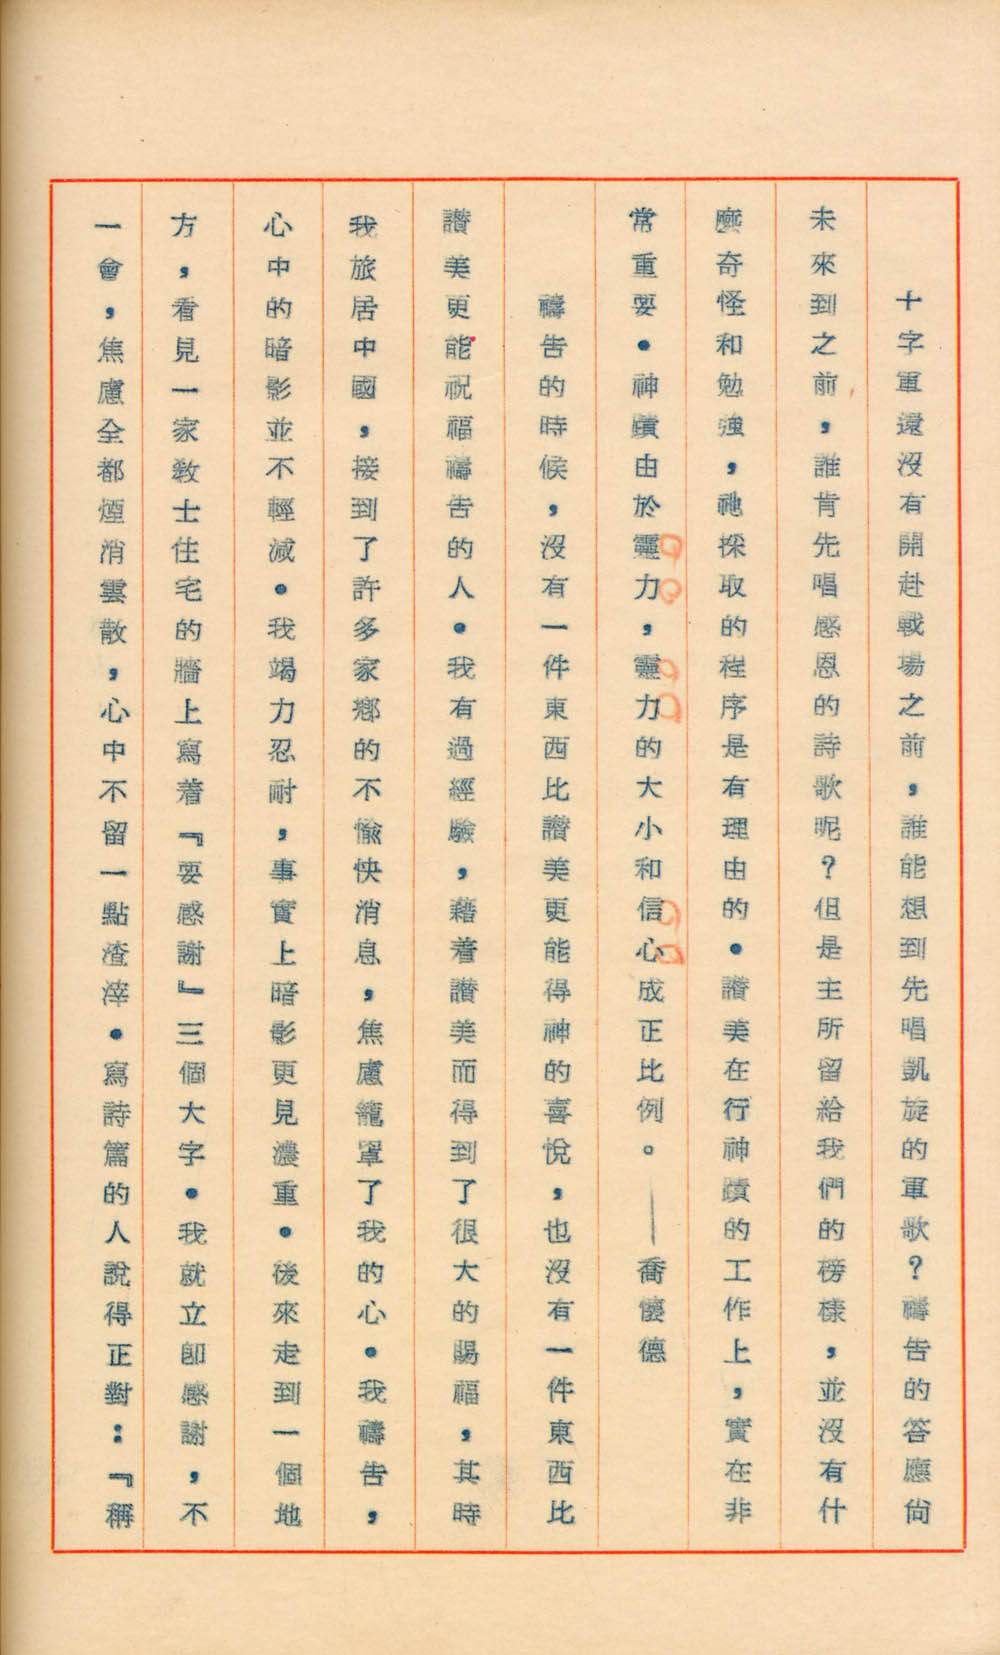 十字軍還沒有開赴戰場之前，誰能想到先唱凱旋的軍歌？禱告的答應尙
未來到之前，誰肯先唱感恩的詩歌呢？但是主所留給我們的榜樣，並沒有什
麼奇怪和勉強，祂採取的程序是有理由的．讚美在行神蹟的工作上，實在非
常重要．神蹟由於靈力，靈力的大小和信心成正比例。——喬懷德
禱告的時候，沒有一件東西比讚美更能得神的喜悅，也沒有一件東西比
讚美更能祝福禱告的人．我有過經驗，藉着讚美而得到了很大的賜福，其時
我旅居中國，接到了許多家鄉的不愉快消息，焦慮籠罩了我的心．我禱告，
心中的暗影並不輕減．我竭力忍耐，事實上暗影更見濃重．後來走到一個地
方，看見一家敎士住宅的牆上寫着『要感謝』三個大字．我就立卽感謝，不
一會，焦慮全都煙消雲散，心中不留一點渣滓．寫詩篇的人說得正對：『稱